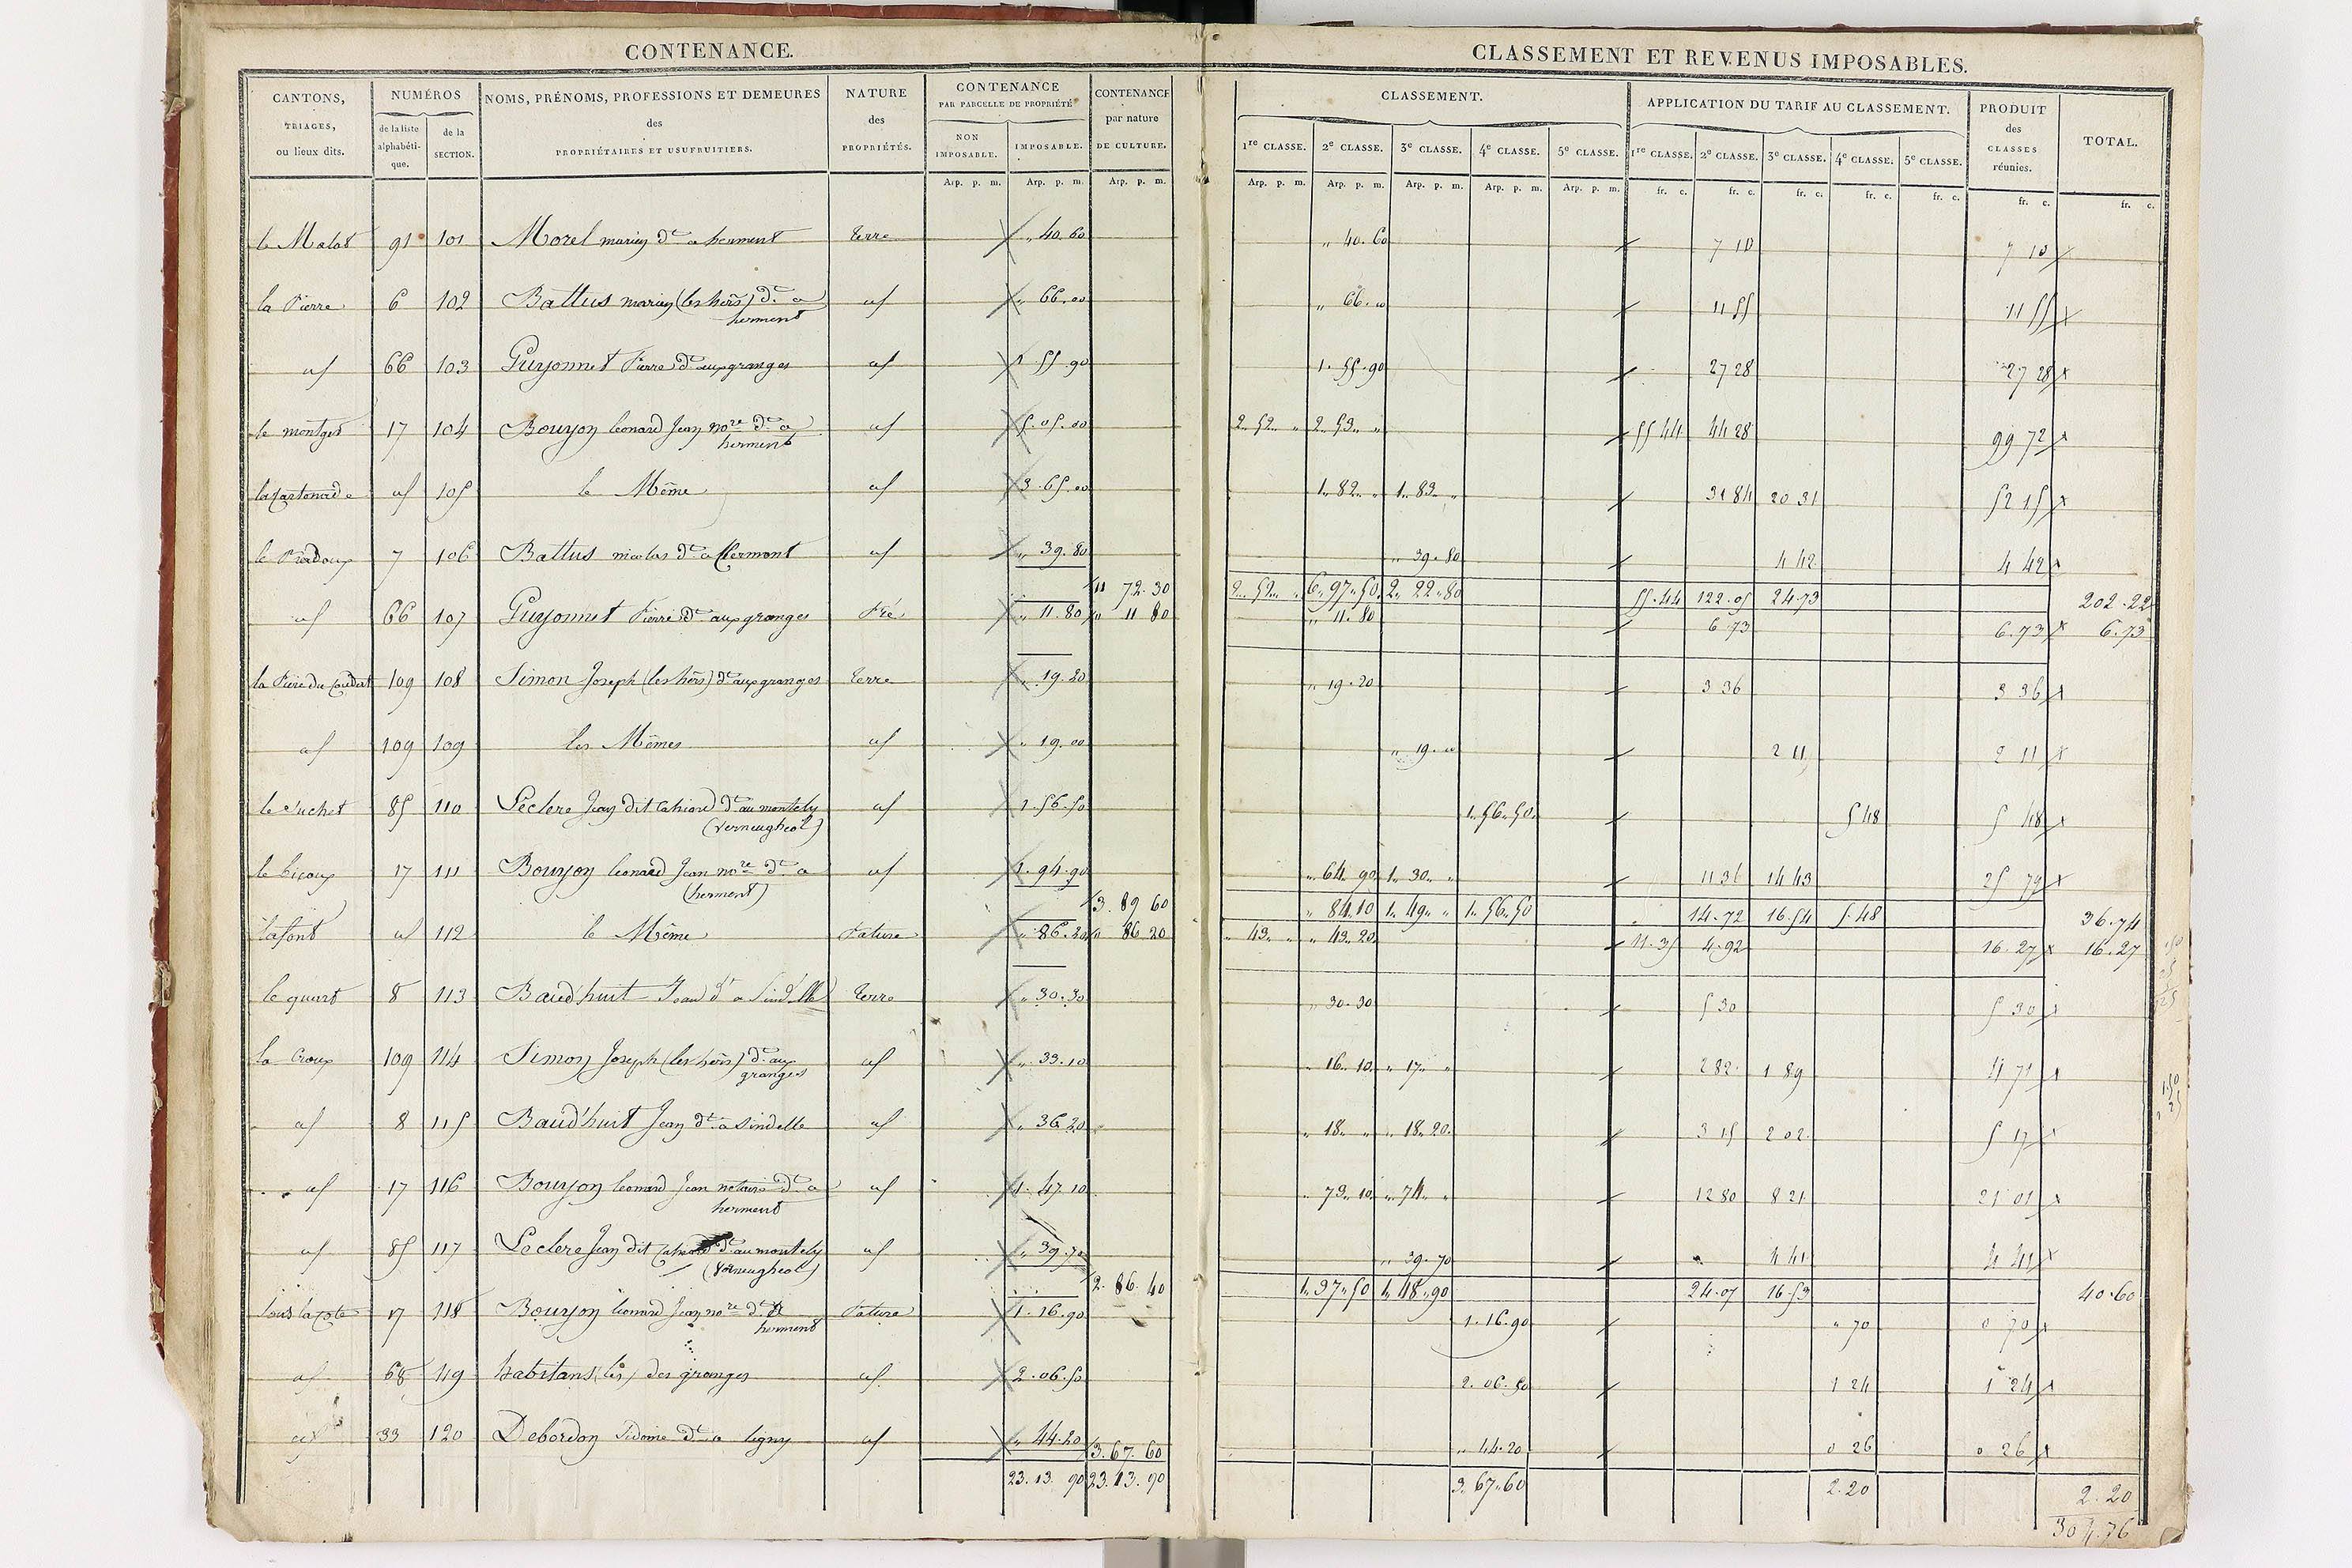 CONTENANCE.
CLASSEMENT ET REVENUS IMPOSABLES.
CANTONS, TRIAGES, ou lieux dits.
NUMÉROS
de la liste alphabétique.
de la SECTION.
NOMS, PRÉNOMS, PROFESSIONS ET DEMEURES
des
PROPRIÉTAIRES ET USUFRUITIERS.
NATURE des PROPRIÉTÉS.
CONTENANCE
PAR PARCELLE DE PROPRIÉTÉ
NON IMPOSABLE.
IMPOSABLE.
CONTENANCE par nature DE CULTURE.
CLASSEMENT.
1re CLASSE. 2e CLASSE. 3e CLASSE. 4e CLASSE. 5e CLASSE.
APPLICATION DU TARIF AU CLASSEMENT.
1re CLASSE. 2e CLASSE. 3e CLASSE. 4e CLASSE. 5e CLASSE.
PRODUIT des CLASSES réunies.
TOTAL.
Arp. p. m. Arp. p. m. Arp. p. m. Arp. p. m. Arp. p. m. Arp. p. m. Arp. p. m. Arp. p. m. fr. c. fr. c. fr. c. fr. c. fr. c. fr. c. fr. c.
le Malot 91 101 Morel marien dt a herment terre " 40. 60 " 40. 60 7 10 7 10
la Pierre 6 102 Battus marien (les hers) dt a herment id " 66. 00 " 66. 00 11 55 11 55
id 66 103 Guyonnet Pierre dt aux granges id 1 55. 90 1. 55. 90 27 28 27 28
le montgot 17 104 Bouyon leonard Jean nore dt a herment id 5. 05. 00 2. 52. " 2. 53. " 55 44 44 28 99 72
id 105 le Même id 3. 65. 00 1. 82. " 1. 83. " 31 84 20 31 52 15
le Pradoux 7 106 Battus nicolas dt a Clermont id " 39. 80 " 39. 80 4 42 4 42
11 72. 30 2. 52. " 6. 97. 50 2. 22. 80 55. 44 122. 05 24. 73 202. 22
id 66 107 Guyonnet Pierre dt aux granges Pré " 11. 80 " 11 80 " 11. 80 6 73 6. 73 6. 73
la Pière du Coudert 109 108 Simon Joseph (les hers) dt aux granges terre " 19. 20 " 19. 20 3 36 3 36
id 109 109 les Mêmes id " 19. 00 " 19. 00 2 11 2 11
le suchet 85 110 Leclere Jean dit Cahiord dt au montely (verneugheol) id 1. 56. 50 1. 56. 50 5 48 5 48
le bicoux 17 111 Bouyon leonard Jean nore dt a (herment) id 1. 94. 90 " 64. 90 1. 30. " 11 36 14 43 25 79
3. 89 60 " 84. 10 1. 49. " 1. 56. 50 14. 72 16. 54 5. 48 36. 74
lafont id 112 le Même Pature " 86. 20 " 86 20 " 43. " " 43. 20 11. 35 4. 92 16. 27 16. 27
le quart 8 113 Baud'huit Jean dt a Sindelle terre " 30. 30 " 30. 30 5 30 5 30
la Croux 109 114 Simon Joseph (les hers) dt aux granges id " 33. 10 " 16. 10 " 17. " 2 82 1 89 4 71
id 8 115 Baud'huit Jean dt a Sindelle id " 36. 20 " 18. " " 18. 20 3 15 2 02 5 17
id 17 116 Bouyon leonard Jean notaire dt a herment id 1. 47. 10 " 73. 10 " 74. " 12 80 8 21 21 01
id 85 117 Leclere Jean dit dt au montely (Verneugheol) id " 39. 70 " 39. 70 4 41 4 41
2. 86. 40 1. 37. 50 1. 48. 90 24. 07 16. 53 40. 60
sous la cote 17 118 Bouyon leonard Jean nore dt a herment Pature 1. 16. 90 1. 16. 90 " 70 0 70
id 68 119 habitans (les) des granges id 2. 06. 50 2. 06. 50 1 24 1 24
id 33 120 Debordon Sidoine dt a ligny id " 44. 20 3. 67. 60 " 44. 20 0 26 0 26
23. 13. 90 23. 13. 90 3. 67. 60 2. 20 2. 20
304. 76